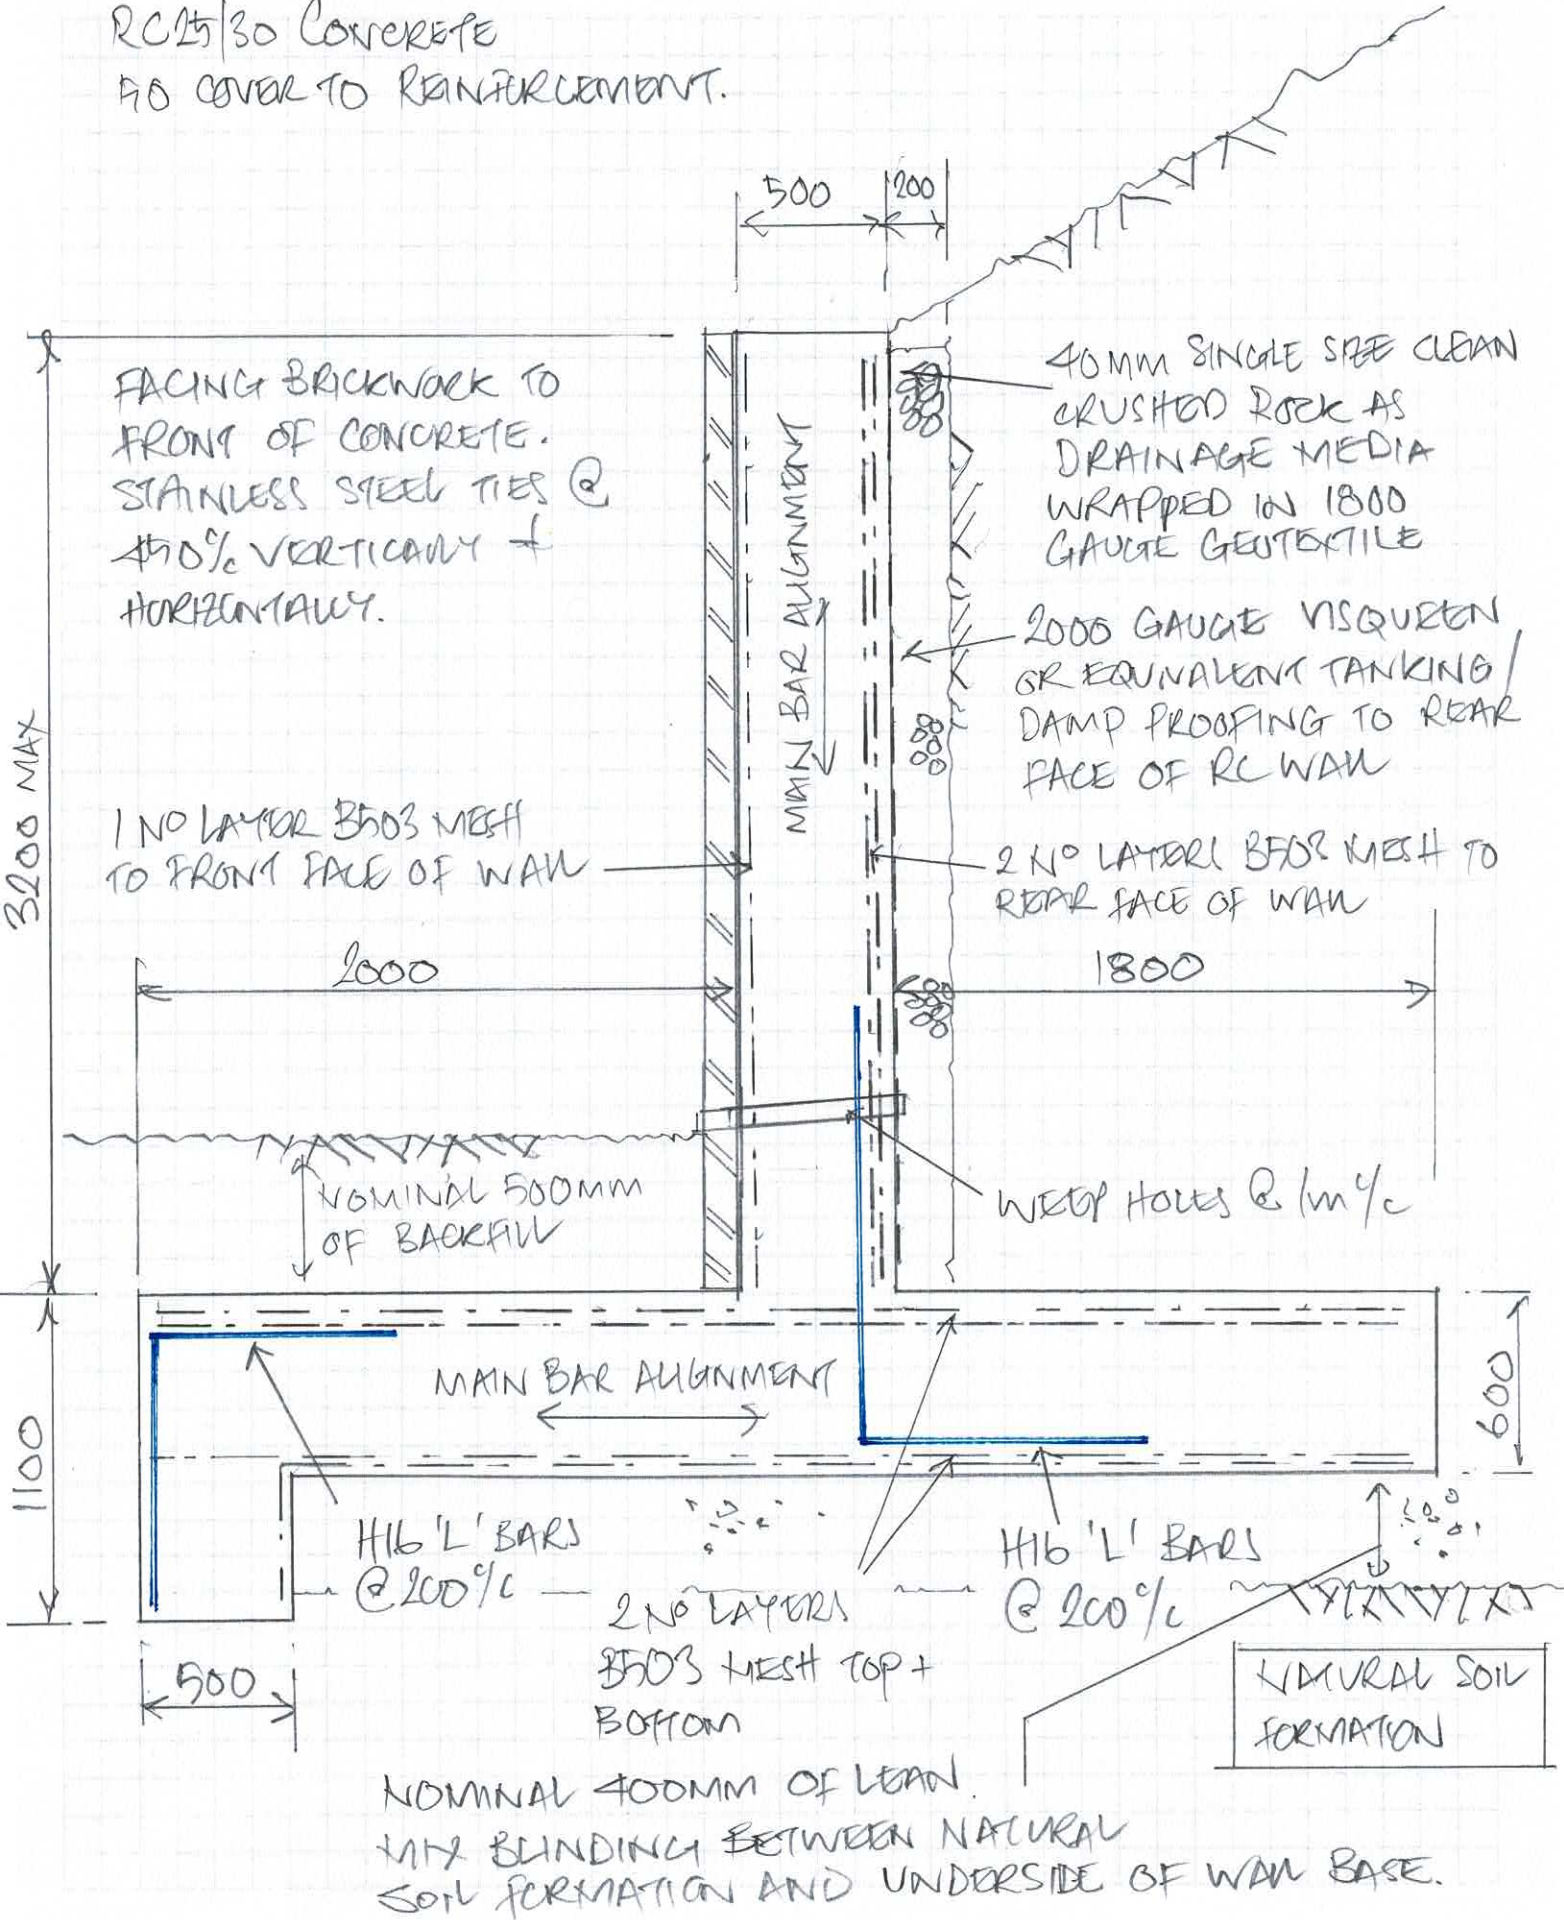 RC25/30 CONCRETE
50 COVER TO REINFORCEMENT.
500
200
FACING BRICKWORK TO
FRONT OF CONCRETE.
STAINLESS STEEL TIES @
450 c/c VERTICALLY +
HORIZONTALLY.
40MM SINGLE SIZE CLEAN
CRUSHED ROCK AS
DRAINAGE MEDIA
WRAPPED IN 1800
GAUGE GEOTEXTILE
MAIN BAR ALIGNMENT
2000 GAUGE VISQUEEN
OR EQUIVALENT TANKING /
DAMP PROOFING TO REAR
FACE OF RC WALL
3200 MAX
1 NO LAYER B503 MESH
TO FRONT FACE OF WALL
2 NO LAYERS B503 MESH TO
REAR FACE OF WALL
2000
1800
NOMINAL 500MM
OF BACKFILL
WEEP HOLES @ 1m c/c
MAIN BAR ALIGNMENT
1100
600
H16 'L' BARS
@ 200 c/c
2 NO LAYERS
B503 MESH TOP +
BOTTOM
H16 'L' BARS
@ 200 c/c
500
NATURAL SOIL
FORMATION
NOMINAL 400MM OF LEAN
MIX BLINDING BETWEEN NATURAL
SOIL FORMATION AND UNDERSIDE OF WALL BASE.